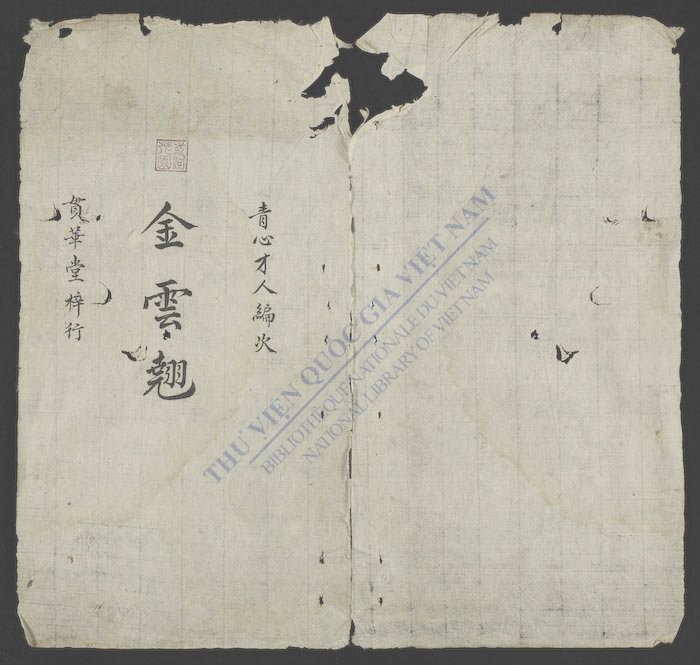 青心才人編次
金雲翹
貫華堂梓行
THƯ VIỆN QUỐC GIA VIỆT NAM
BIBLIOTHÈQUE NATIONALE DU VIETNAM
NATIONAL LIBRARY OF VIETNAM